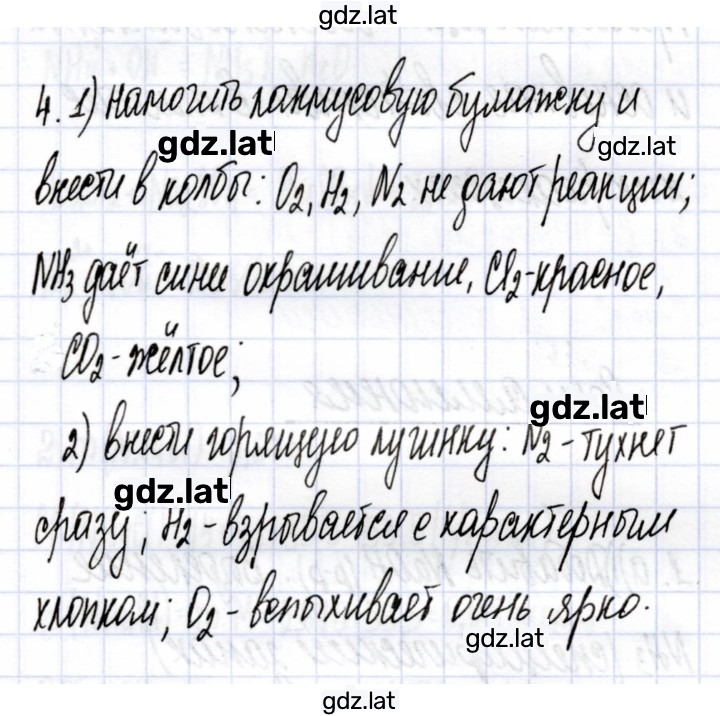 gdz.lat
4. 1) Намочить лакмусовую бумажку и
gdz.lat gdz.lat
внести в колбы: O2, H2, N2 не дают реакции;
NH3 даёт сини окрашивание, Cl2-красное,
CO2-жёлтое;
gdz.lat
2) внести горящую лучинку: N2-тухнет
gdz.lat
сразу; H2-взрывается с характерным
хлопком; O2-вспыхивает очень ярко.
gdz.lat
gdz.lat